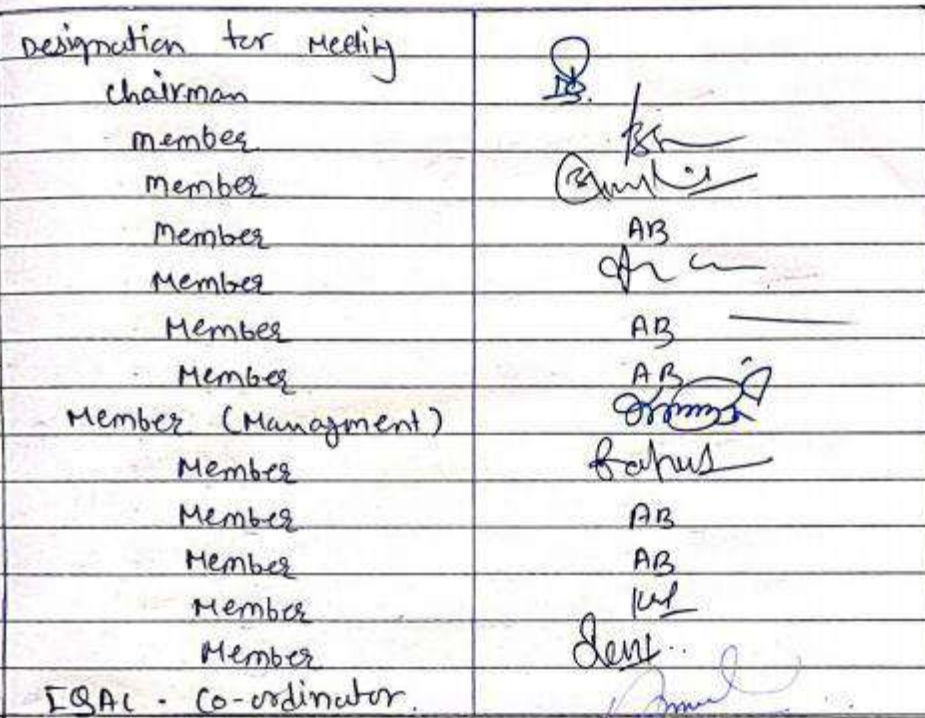 Designation for Meeting
Chairman
member
member
Member AB
Member
Member AB
Member AB
Member (Managment)
Member
Member AB
Member AB
Member
Member
IQAC - Co-ordinator.